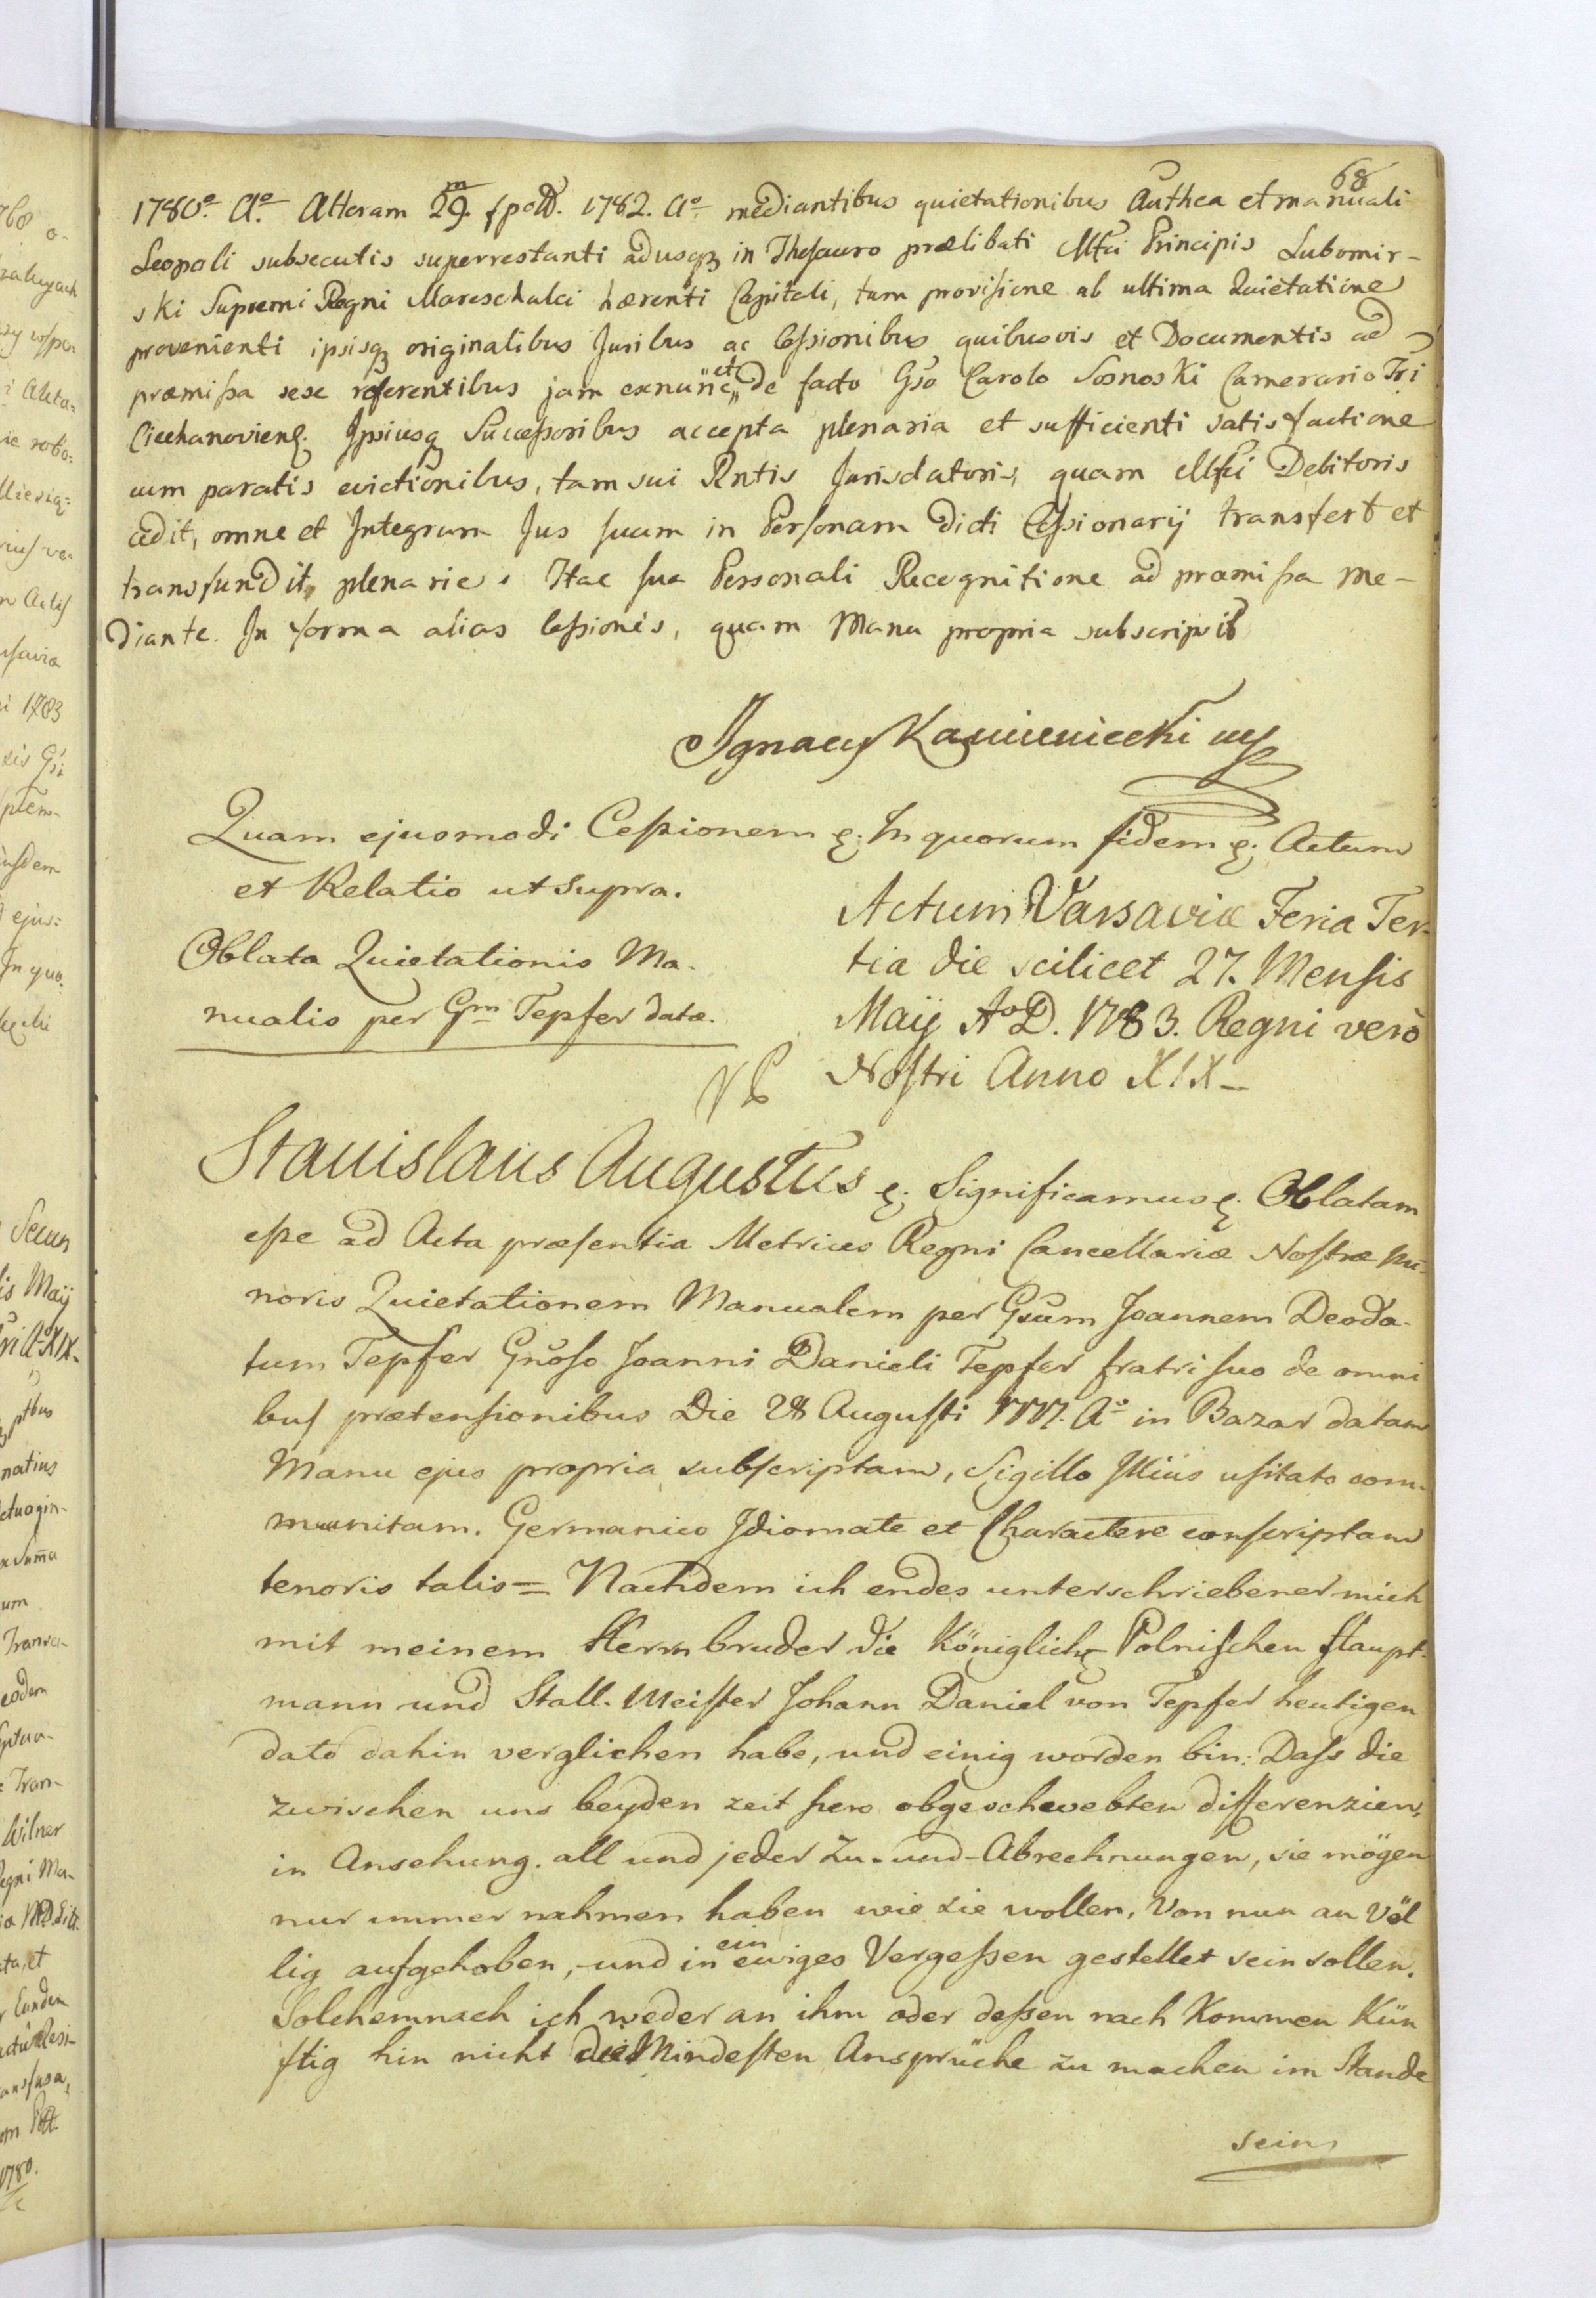 68
1780o. Ao. Alteram 29m. Xpoll. 1782. Ao. mediantibus quietationibus Authca et manuali
Leopoli subsecutis superrestanti adusqz in Thesauro prælibati Mfci Principis Lubomir-
ski Supremi Regni Mareschalci hærenti Capitali, tum provisione ab ultima Quietatione
provenienti ipsisqz originalibus Juribus ac Cessionibus quibusvis et Documentis ad
præmissa sese referentibus jam exnunc et de facto Gso Carolo Sosnoski Camerario Tri
Ciechanovien. Ipsiusq Successoribus accepta plenaria et sufficienti satisfactione
cum paratis evictionibus, tam sui Rntis Jurisdatoris, quam Mfci Debitoris
cedit, omne et Integrum Jus suum in Personam dicti Cessionarij transfert et
transfundit, plenarie. Hac sua Personali Recognitione ad præmissa me-
diante. In forma alias Cessionis, quam Manu propria subscripsit
Ignacy Kamieniecki mp
Quam ejusmodi Cessionem &. In quorum fidem &. Actum
et Relatio ut supra.
Oblata Quietationis Ma-
nualis per Gm Tepfer datæ.
Actum Varsaviæ Feria Ter-
tia die scilicet 27. Mensis
Maij Ao D. 1783. Regni verò
Nostri Anno XIX-
Stanislaus Augustus &. Significamus &. Oblatam
esse ad Acta præsentia Metrices Regni Cancellariæ Nostræ Mi-
noris Quietationem Manualem per Gsum Joannem Deoda-
tum Tepfer Gnoso Joanni Danieli Tepfer fratri suo de omni
bus prætensionibus Die 28 Augusti 1777. Ao in Bazar datam
Manu ejus propria subscriptam, Sigillo Illius usitato com-
munitam. Germanico Idiomate et Charactere conscriptam
tenoris talis= Nachdem ich endes unterschriebener mich
mit meinem Herrn bruder die Königliche Polnischen Haupt-
mann und Stall-Meister Johann Daniel von Tepfer heutigen
dato dahin verglichen habe, und einig worden bin: Dass die
zwischen uns beyden zeit hero obgeschwebten differenzien,
in Ansehung. all und jeder Zu- und- Abrechnungen, sie mögen
nur immer nahmen haben wie sie wollen, Von nun an Völ
lig aufgehoben, und in ein ewiges Vergessen gestellet sein sollen.
Solchemnach ich weder an ihm oder dessen nach Kommen Kün
ftig hin nicht die Mindesten Ansprüche zu machen im Stande
sein